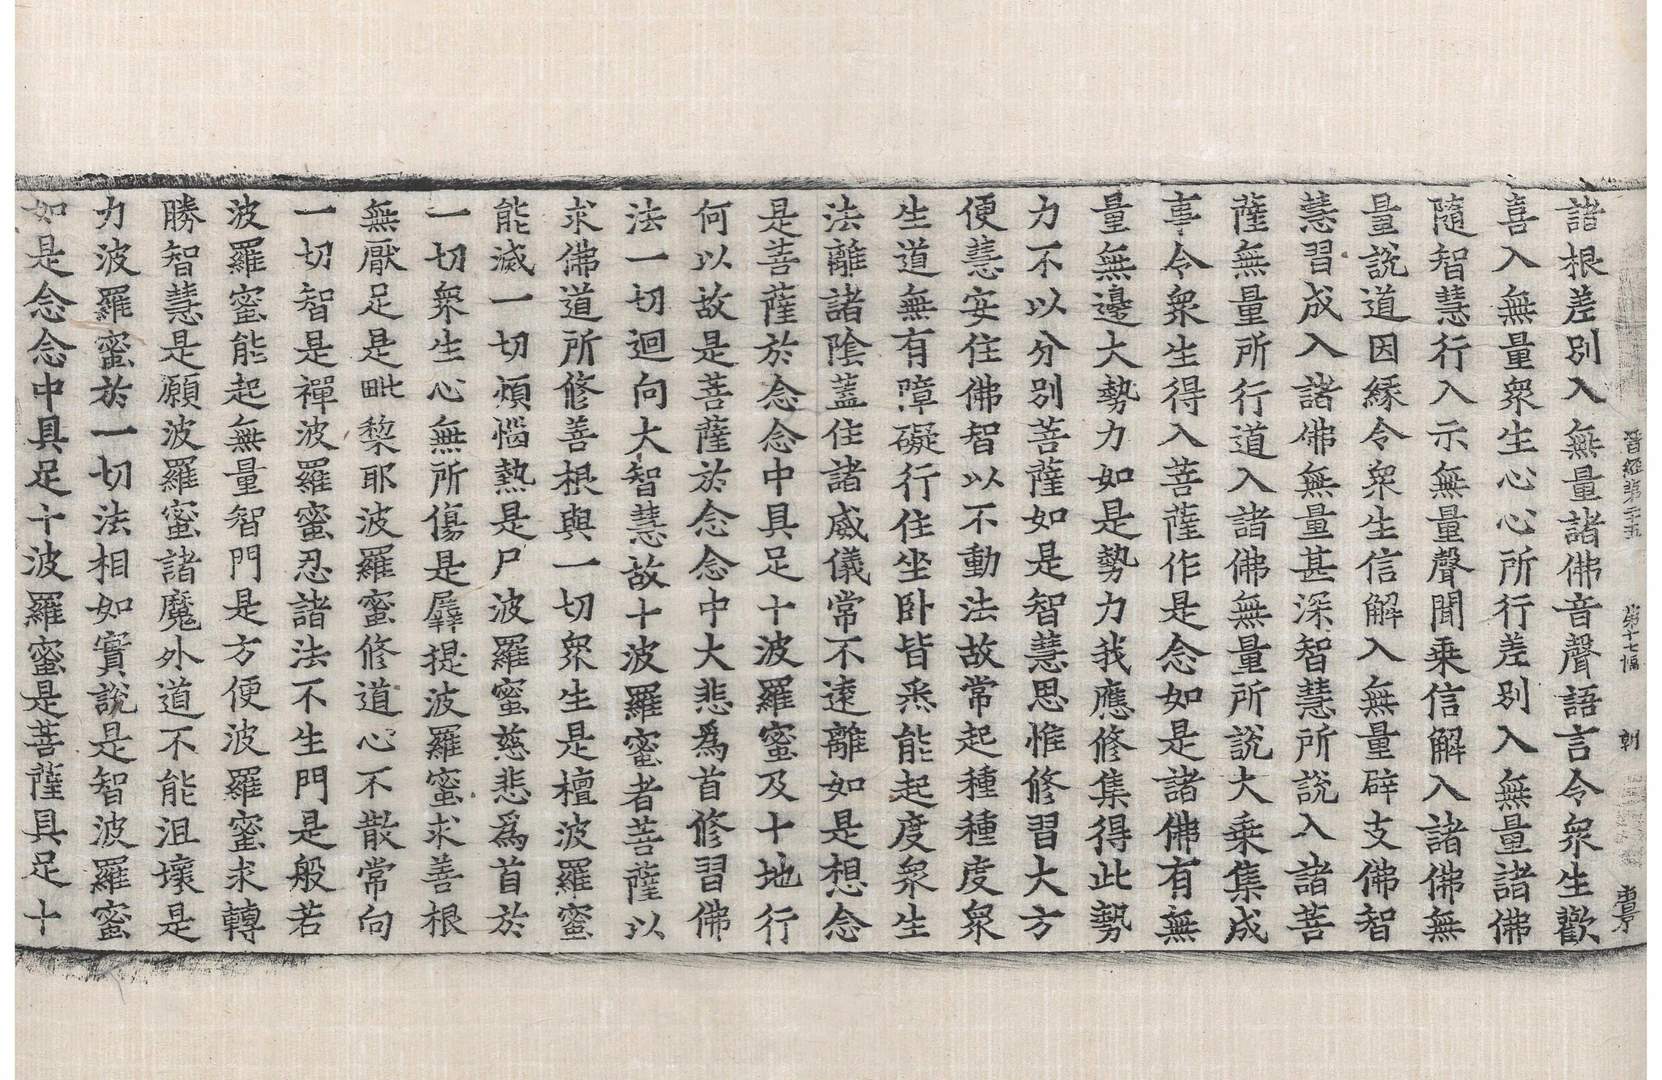 晋經第二十五 第十七幅 朝
諸根差别入無量諸佛音聲語言令衆生歡
喜入無量衆生心心所行差别入無量諸佛
隨智慧行入示無量聲聞乘信解入諸佛無
量說道因緣令衆生信解入無量辟支佛智
慧習成入諸佛無量甚深智慧所說入諸菩
薩無量所行道入諸佛無量所說大乘集成
事令衆生得入菩薩作是念如是諸佛有無
量無邊大勢力如是勢力我應修集得此勢
力不以分别菩薩如是智慧思惟修習大方
便慧安住佛智以不動法故常起種種度衆
生道無有障礙行住坐卧皆悉能起度衆生
法離諸陰蓋住諸威儀常不遠離如是想念
是菩薩於念念中具足十波羅蜜及十地行
何以故是菩薩於念念中大悲爲首修習佛
法一切迴向大智慧故十波羅蜜者菩薩以
求佛道所修善根與一切衆生是檀波羅蜜
能滅一切煩惱熱是尸波羅蜜慈悲爲首於
一切衆生心無所傷是羼提波羅蜜求善根
無厭足是毗棃耶波羅蜜修道心不散常向
一切智是禪波羅蜜忍諸法不生門是般若
波羅蜜能起無量智門是方便波羅蜜求轉
勝智慧是願波羅蜜諸魔外道不能沮壞是
力波羅蜜於一切法相如實說是智波羅蜜
如是念念中具足十波羅蜜是菩薩具足十